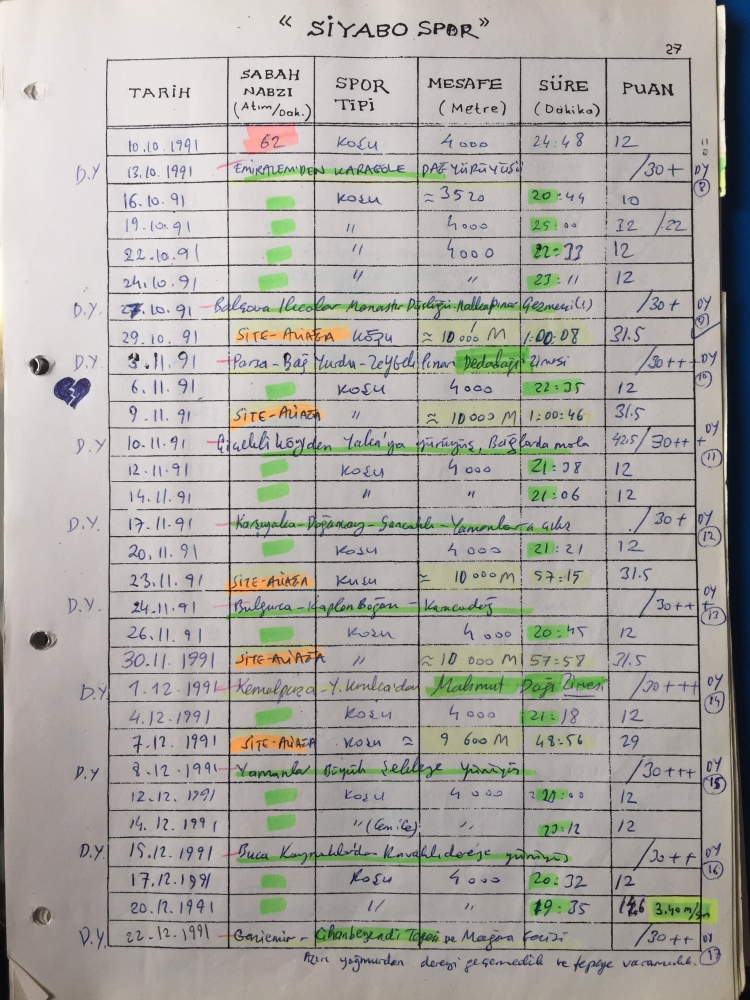 “ SİYABO SPOR”
27
TARİH SABAH NABZI (Atım/Dak.) SPOR TİPİ MESAFE (Metre) SÜRE (Dakika) PUAN
10.10.1991 62 KOŞU 4000 24:48 12
D.Y 13.10.1991 EMİRALEM'DEN KARAGÖLE DAĞ YÜRÜYÜŞÜ /30+ DY 8
16.10.91 KOŞU ≈3520 20:44 10
19.10.91 " 4000 25:00 32 /22
22.10.91 " 4000 22:33 12
24.10.91 " " 23:11 12
D.Y. 27.10.91 Balçova Ilıcalar Manastır Düzlüğü Halkapınar Gezmesi(1) /30+ DY 9
29.10.91 SİTE-ALİAĞA KOŞU ≈10000M 1:00:08 31.5
D.Y. 3.11.91 Parsa-Bağ Yurdu-Zeybek Pınarı Dedebaği Zirvesi /30++ DY 10
6.11.91 KOŞU 4000 22:35 12
9.11.91 SİTE-ALİAĞA " ≈10000M 1:00:46 31.5
D.Y 10.11.91 Çiçekli Köyden Yaka'ya yürüyüş, Bağlarda mola 42.5/30+++ DY 11
12.11.91 KOŞU 4000 21:38 12
14.11.91 " " 21:06 12
D.Y. 17.11.91 Karşıyaka-Doğançay-Sancaklı-Yamanlar'a çıkış /30+ DY 12
20.11.91 KOŞU 4000 21:21 12
23.11.91 SİTE-ALİAĞA KOŞU ≈10000M 57:15 31.5
D.Y. 24.11.91 Bulgurca-Kaplan Boğazı-Karacadağ /30+++ DY 13
26.11.91 KOŞU 4000 20:45 12
30.11.1991 SİTE-ALİAĞA " ≈10000M 57:58 31.5
D.Y. 1.12.1991 Kemalpaşa-Y.Kızılca'dan Mahmut Dağı Zirvesi /30+++ DY 14
4.12.1991 KOŞU 4000 21:18 12
7.12.1991 SİTE-ALİAĞA KOŞU ≈ 9600M 48:56 29
D.Y 8.12.1991 Yamanlar Büyük Şelaleye yürüyüş /30+++ DY 15
12.12.1991 KOŞU 4000 20:00 12
14.12.1991 " " 20:12 12
D.Y. 15.12.1991 Buca Kaynaklar'dan Kavaklıdere'ye yürüyüş /30++ DY 16
17.12.1991 KOŞU 4000 20:32 12
20.12.1991 " " 19:35 3.40 m/sn
D.Y. 22.12.1991 Gaziemir-Cihanbeyendi Tepesi ve Mağara Gezisi /30++ DY 17
Aşırı yağmurdan dereyi geçemedik ve tepeye varamadık.